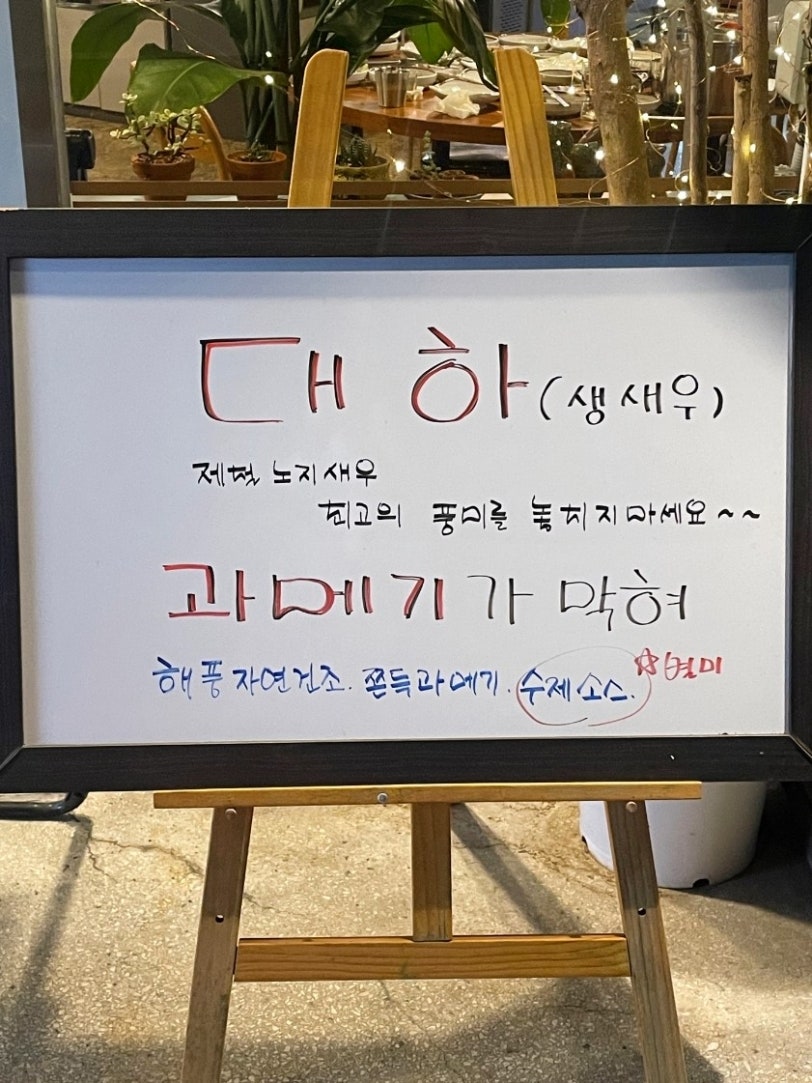 대하 (생새우)
제철 노지새우
최고의 풍미를 놓치지마세요~~
과메기가 막혀
해풍 자연건조. 쫀득과메기. 수제소스. ☆별미